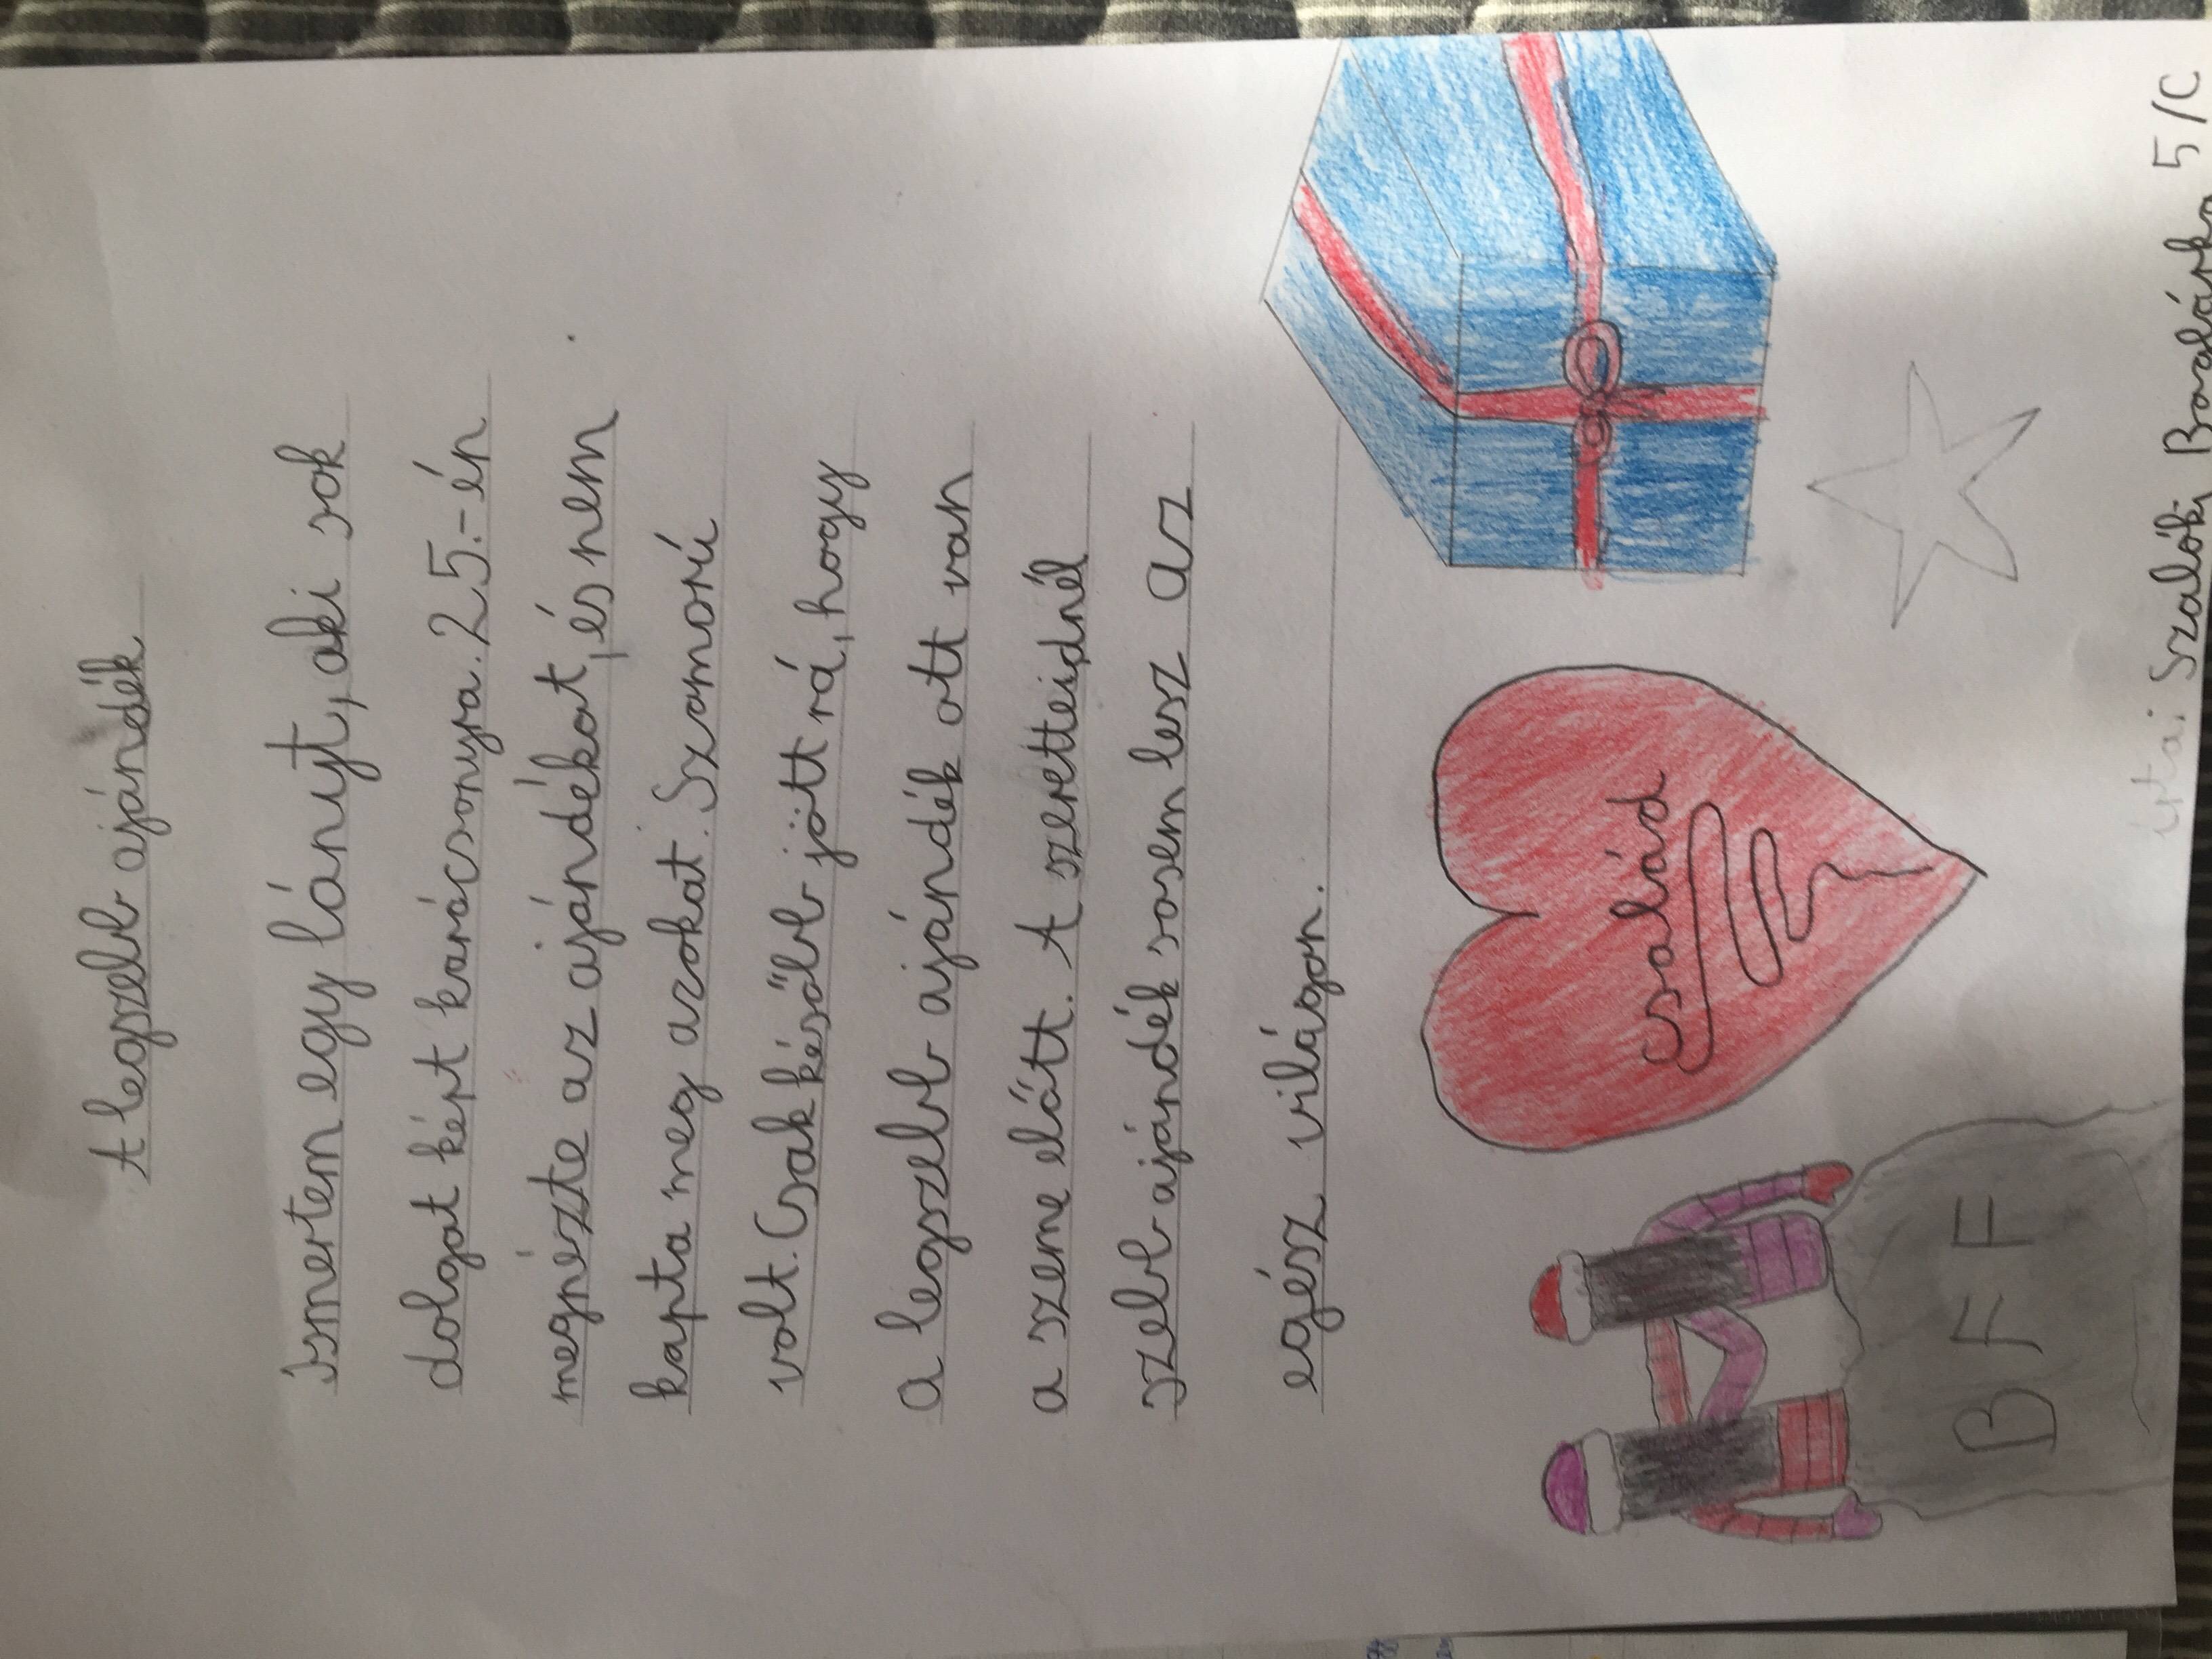 A legszebb ajándék
Ismertem egy lányt, aki sok
dolgot kért karácsonyra. 25.-én
megnézte az ajándékot, és nem
kapta meg azokat. Szomorú
volt. Csak később jött rá, hogy
a legszebb ajándék ott van
a szeme előtt. A szeretteidnél
szebb ajándék sosem lesz az
egész világon.
család
BFF
írta: Szalóki Boglárka 5/C